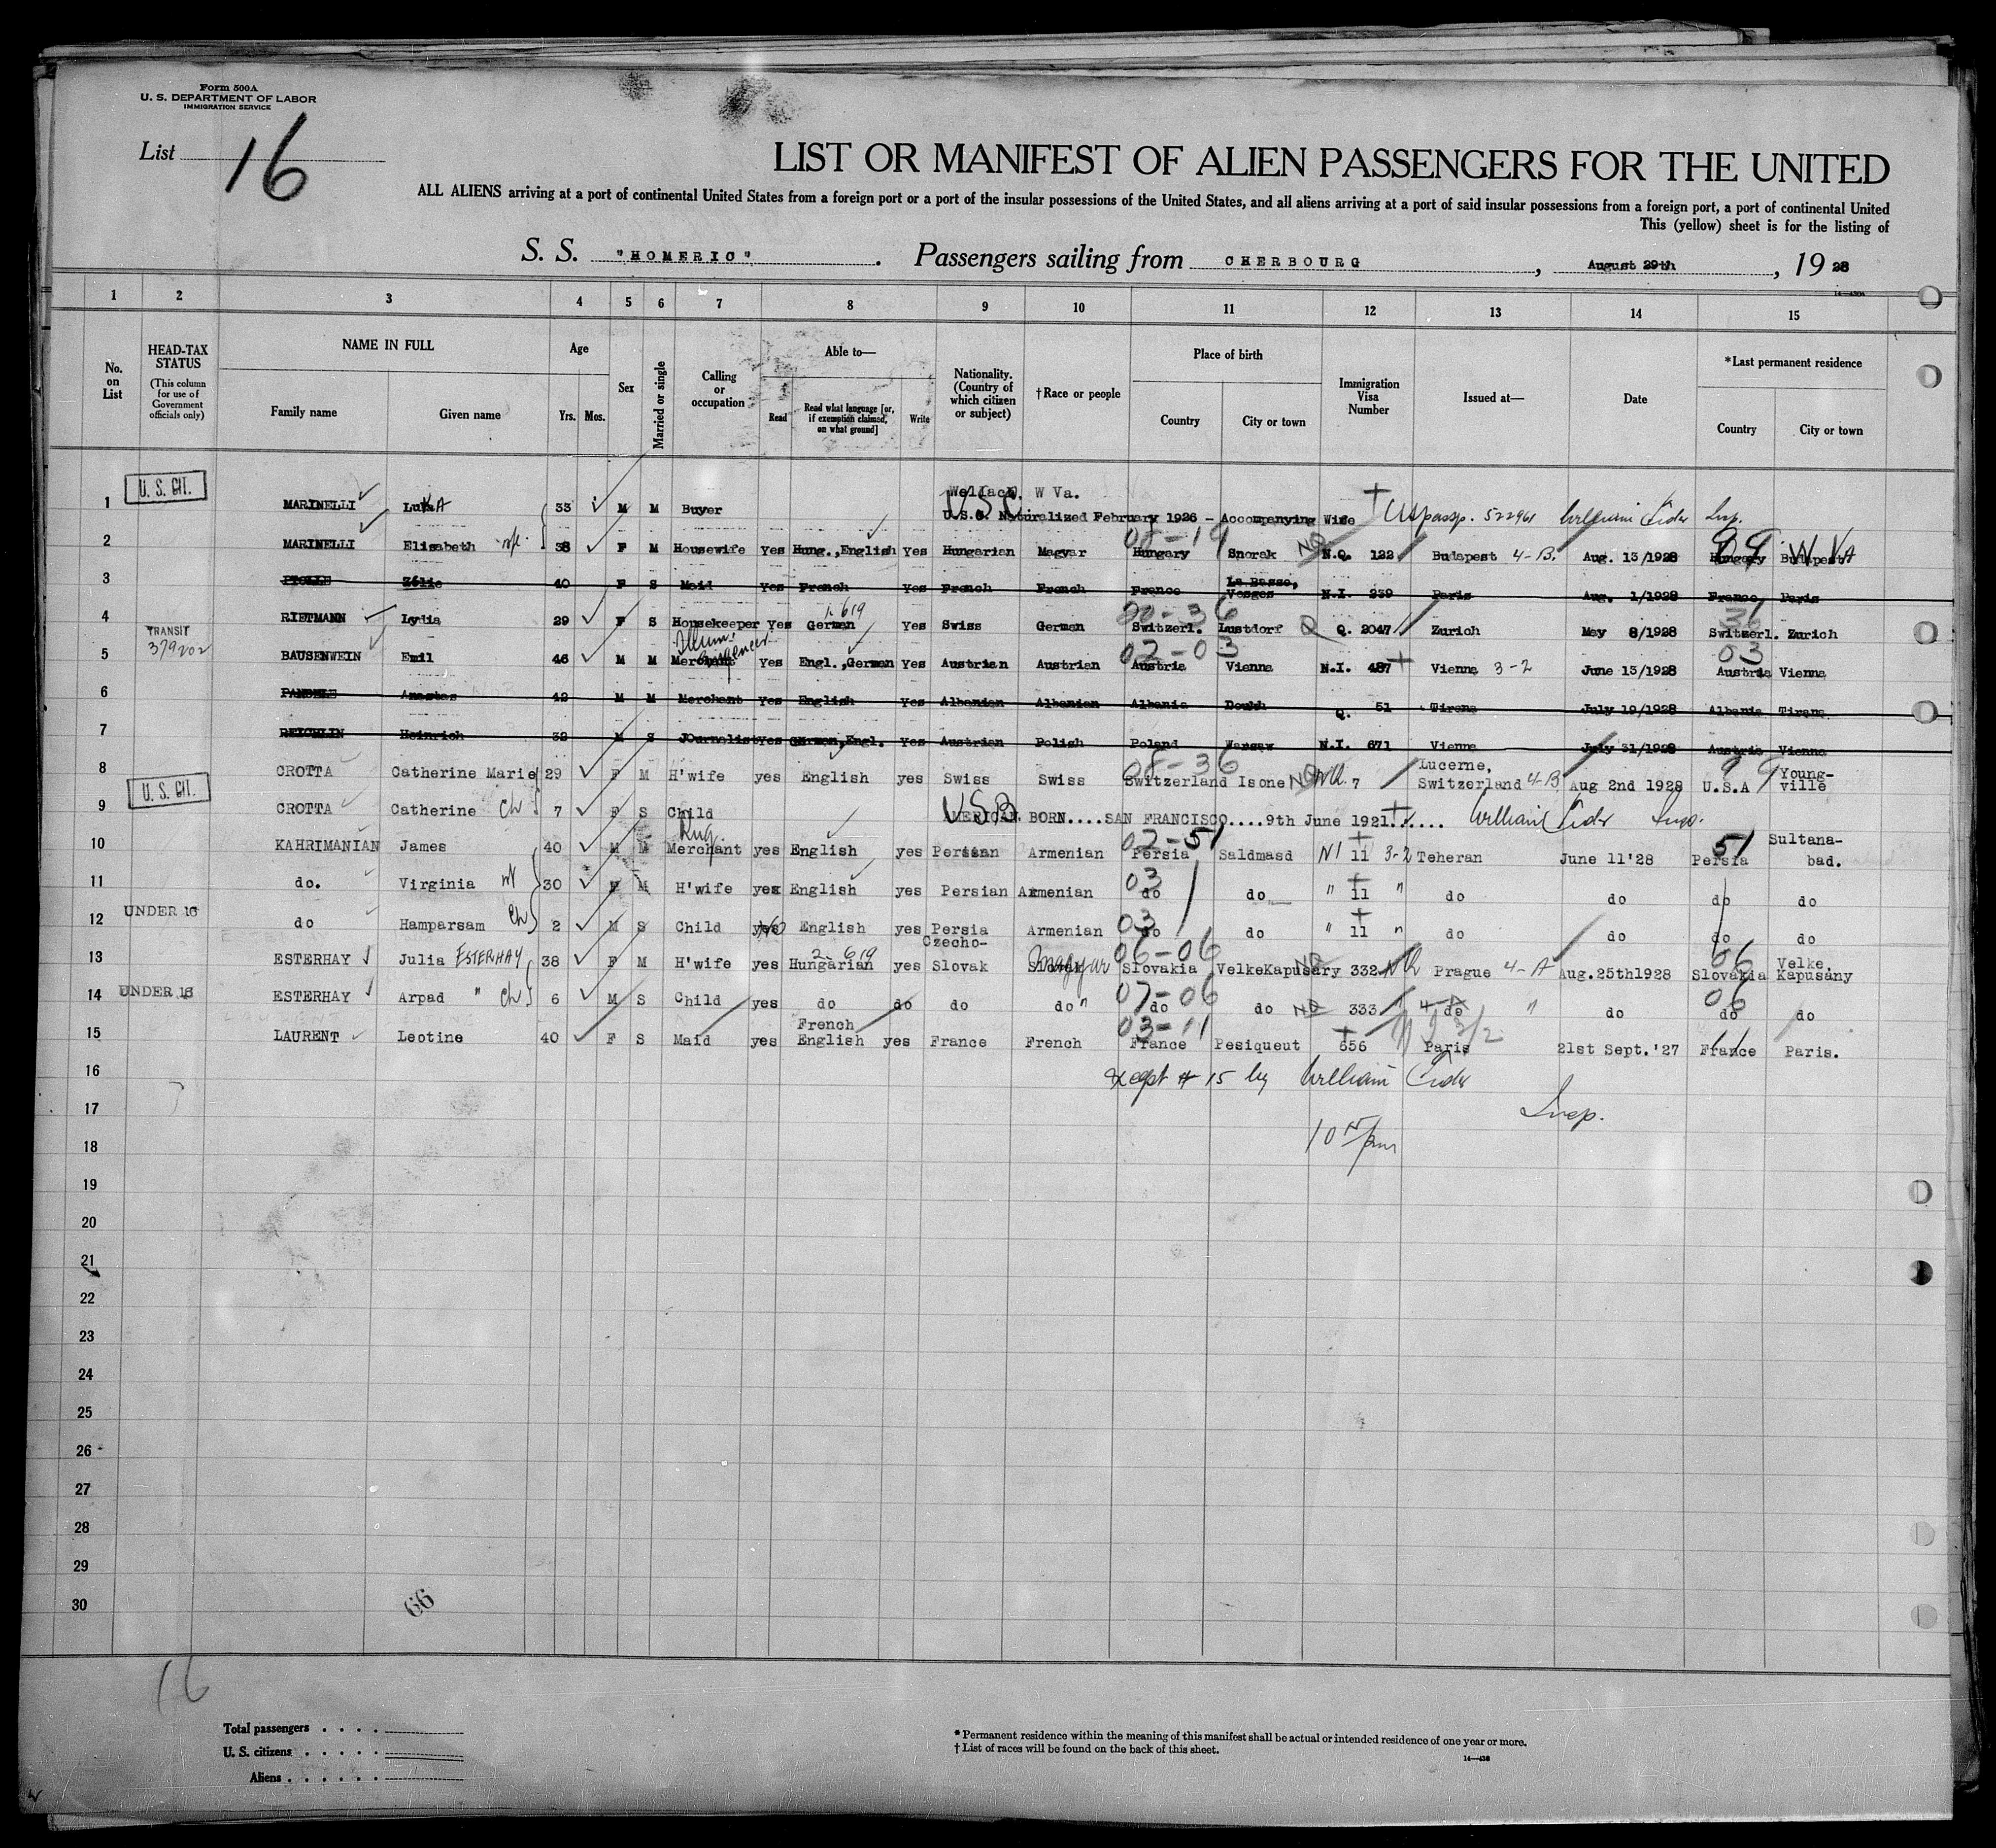 Form 500A
U. S. DEPARTMENT OF LABOR
IMMIGRATION SERVICE
List 16
LIST OR MANIFEST OF ALIEN PASSENGERS FOR THE UNITED
ALL ALIENS arriving at a port of continental United States from a foreign port or a port of the insular possessions of the United States, and all aliens arriving at a port of said insular possessions from a foreign port, a port of continental United
This (yellow) sheet is for the listing of
S. S. "HOMERIC". Passengers sailing from CHERBOURG, August 29th, 1928
1 2 3 4 5 6 7 8 9 10 11 12 13 14 15
No. on List
HEAD-TAX STATUS (This column for use of Government officials only)
NAME IN FULL
Family name
Given name
Age
Yrs. Mos.
Sex
Married or single
Calling or occupation
Able to—
Read
Read what language [or, if exemption claimed, on what ground]
Write
Nationality. (Country of which citizen or subject)
†Race or people
Place of birth
Country
City or town
Immigration Visa Number
Issued at—
Date
*Last permanent residence
Country
City or town
Wellach, W Va.
1 U. S. CIT. MARINELLI Luka 33 M M Buyer USC U.S.C. Naturalized February 1926 - Accompanying Wife US passp. 522961 William Insp.
2 MARINELLI Elisabeth wf. 38 F M Housewife Yes Hung.,English Yes Hungarian Magyar Hungary Snorak NQ N.Q. 122 Budapest 4-B. Aug. 13/1928 Hungary Budapest 99 W VA
3 Zélie 40 F S Maid Yes French Yes French French France La Basse, Vosges N.I. 239 Paris Aug. 1/1928 France, Paris
4 RIETMANN Lydia 29 F S Housekeeper Yes German Yes Swiss German 00-36 Switzerl. Lustdorf Q Q. 2047 Zurich May 8/1928 36 Switzerl. Zurich
TRANSIT
379202
5 BAUSENWEIN Emil 46 M M Merchant Illum. Engineer Yes Engl.,German Yes Austrian Austrian 02-03 Austria Vienna N.I. 487 Vienna 3-2 June 13/1928 03 Austria Vienna
6 42 M M Merchant Yes English Yes Albanian Albanian Albania Q. 51 Tirana July 19/1928 Albania Tirana
7 REICHLIN Heinrich 32 M S JOurnalist Yes German,Engl. Yes Austrian Polish Poland Warsaw N.I. 671 Vienna July 31/1928 Austria Vienna
8 CROTTA Catherine Marie 29 F M H'wife yes English yes Swiss Swiss 08-36 Switzerland Isone NQ 7 Lucerne, Switzerland 4-B Aug 2nd 1928 U.S.A 99 Young-ville
9 U. S. CIT. CROTTA Catherine Ch 7 F S Child USB AMERICAN BORN....SAN FRANCISCO....9th June 1921...... William Insp.
10 KAHRIMANIAN James 40 M M Merchant Rug yes English yes Persian Armenian 02-51 Persia Saldmasd NI 11 3-2 Teheran June 11'28 51 Persia Sultana-bad.
11 do. Virginia wf 30 F M H'wife yes English yes Persian Armenian 03 do do " 11 " do do do do
12 UNDER 16 do Hamparsam Ch 2 M S Child yes No English yes Persia Armenian 03 do do " 11 " do do do do
13 ESTERHAY Julia ESTERHAY 38 F M H'wife yes Hungarian yes Czecho-Slovak Magyar 06-06 Slovakia VelkeKapusary NQ 332 Prague 4-A Aug.25th1928 06 Slovakia Velke Kapusány
14 UNDER 16 ESTERHAY Arpad " Ch 6 M S Child yes do do do do " 07-06 do do NQ 333 " 4-A do " do 06 do do
15 LAURENT Leotine 40 F S Maid yes French English yes France French 03-11 France Pesiqueut 656 NI 3/2 Paris 21st Sept.'27 11 France Paris.
16 Except # 15 by William
17 Insp.
18
19
20
21
22
23
24
25
26
27
28
29
30
66
16
Total passengers . . . .
U. S. citizens . . . . .
Aliens . . . . . .
*Permanent residence within the meaning of this manifest shall be actual or intended residence of one year or more.
† List of races will be found on the back of this sheet.
14—430